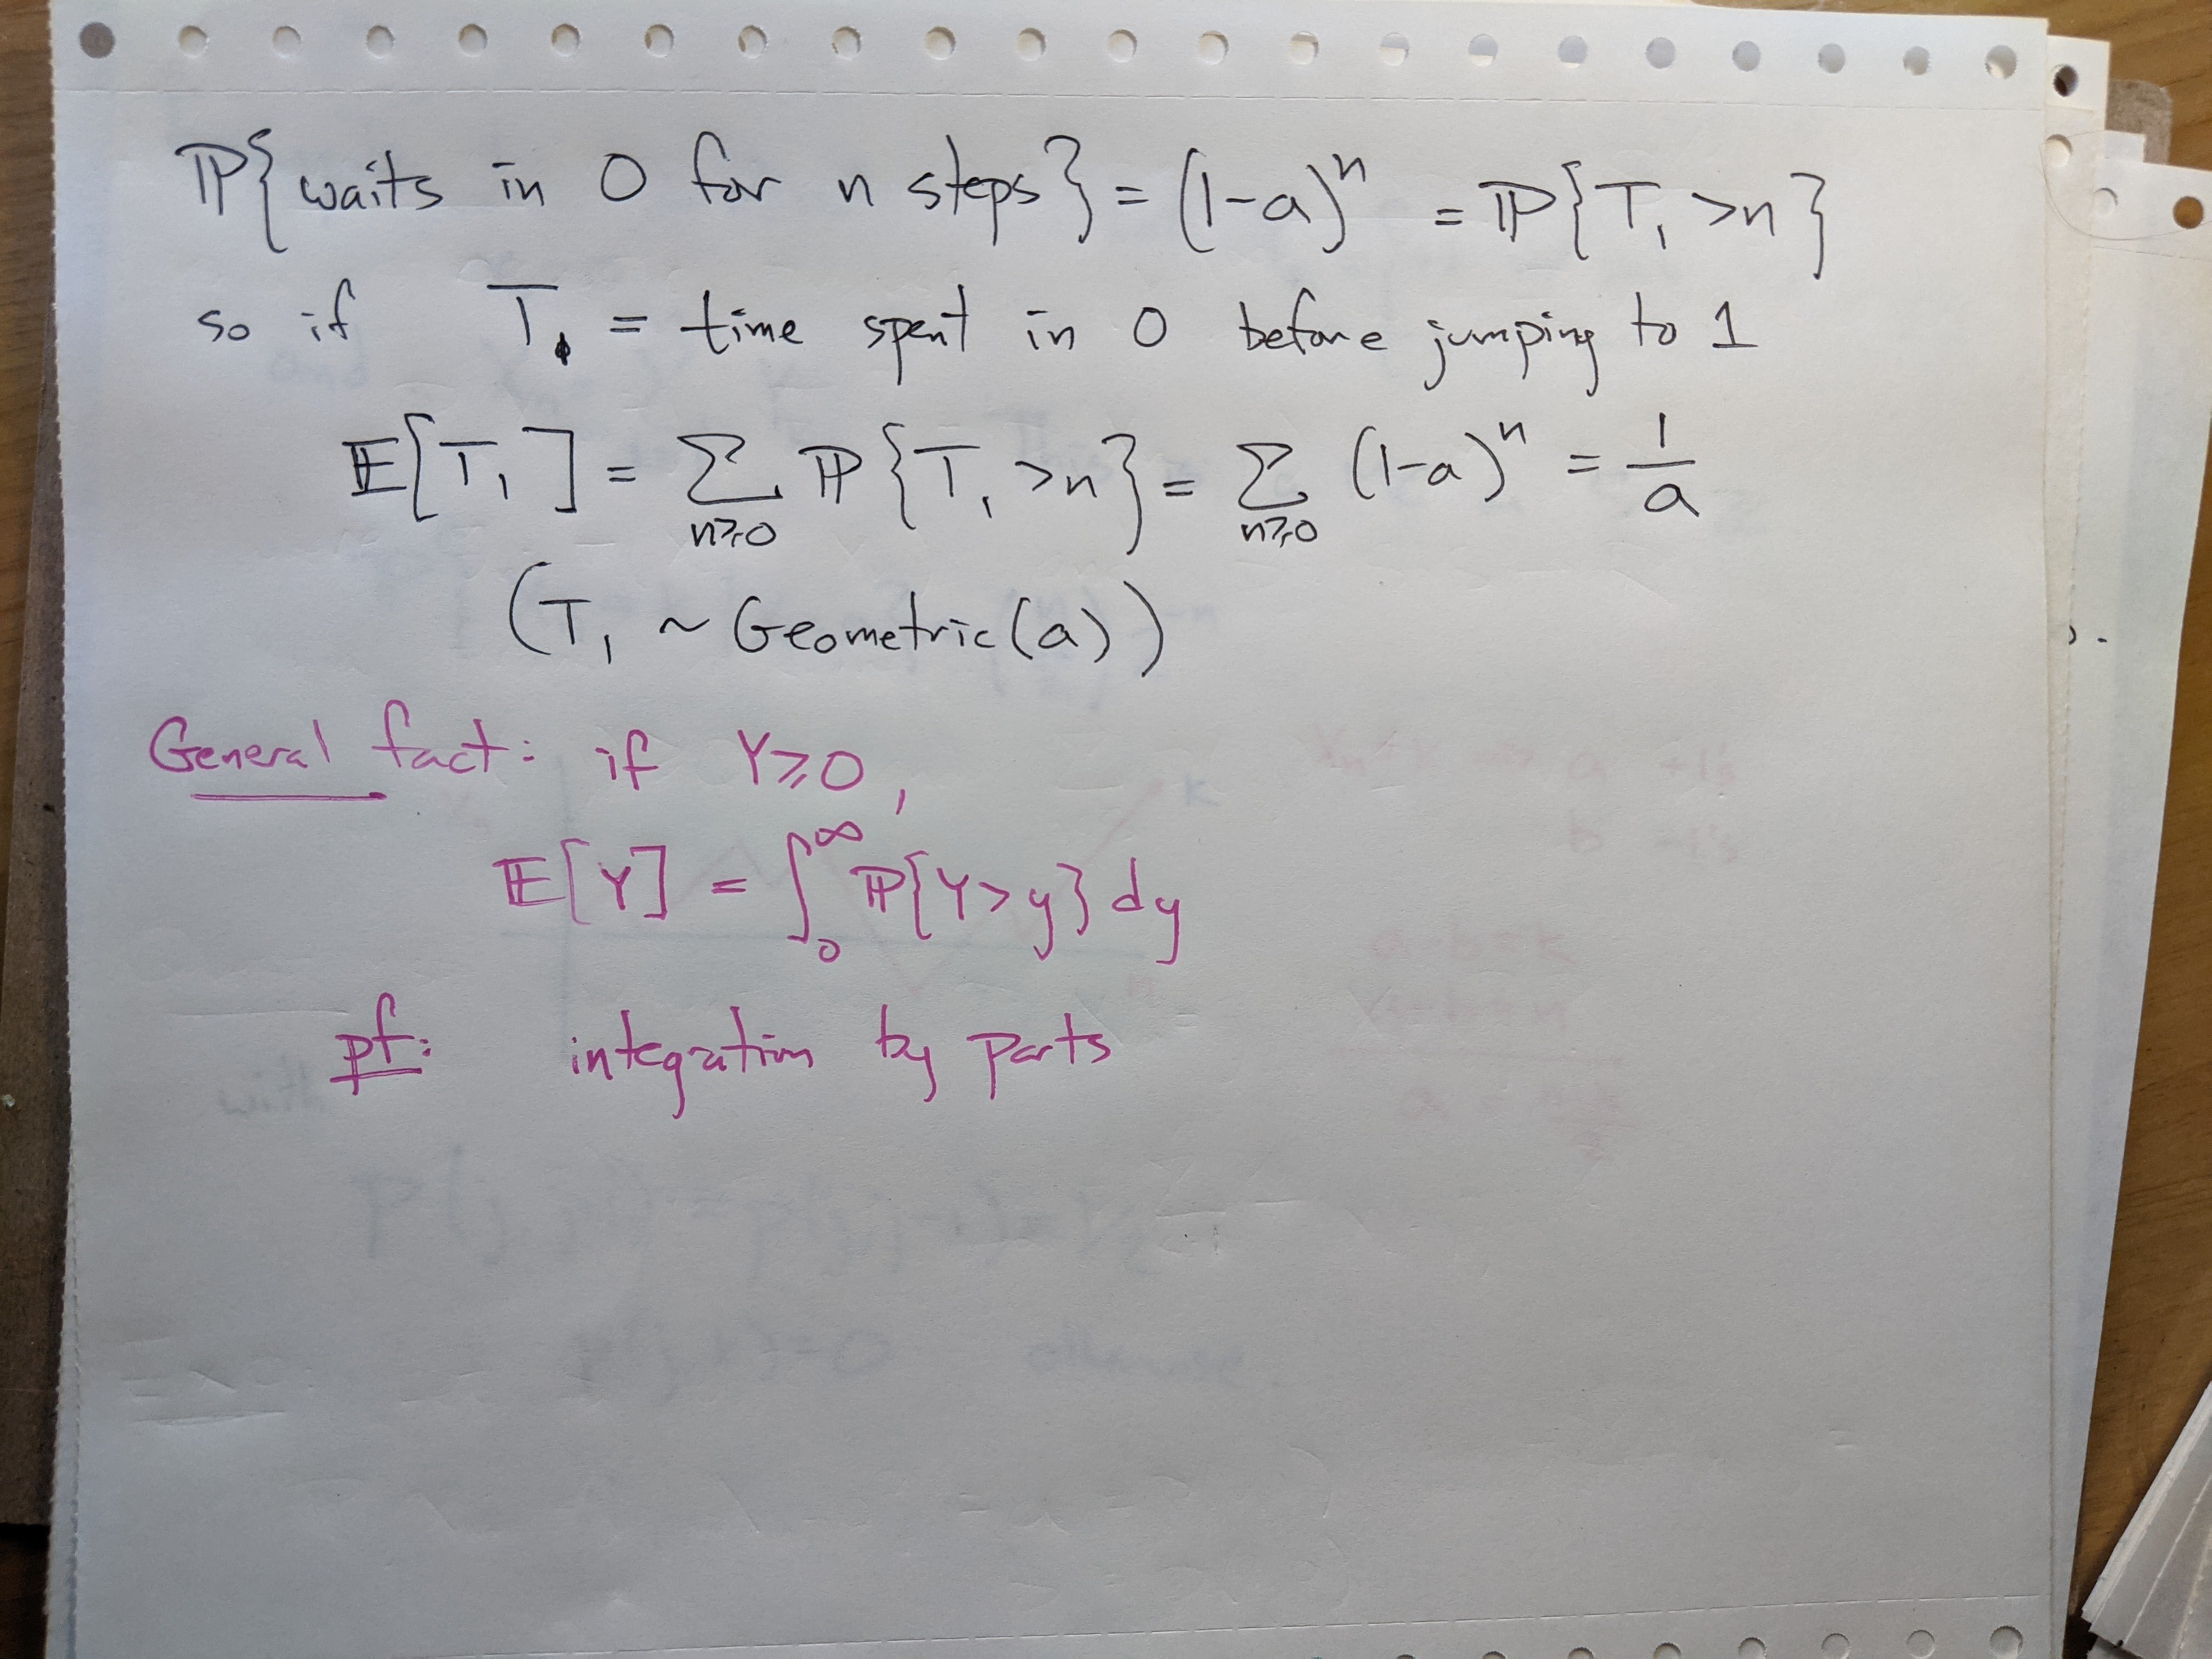 ℙ{waits in 0 for n steps} = (1-a)ⁿ = ℙ{T₁ > n}
so if T₁ = time spent in 0 before jumping to 1
𝔼[T₁] = Σ_{n≥0} ℙ{T₁ > n} = Σ_{n≥0} (1-a)ⁿ = 1/a
(T₁ ~ Geometric(a))
General fact: if Y ≥ 0,
𝔼[Y] = ∫₀^∞ ℙ{Y > y} dy
pf: integration by parts